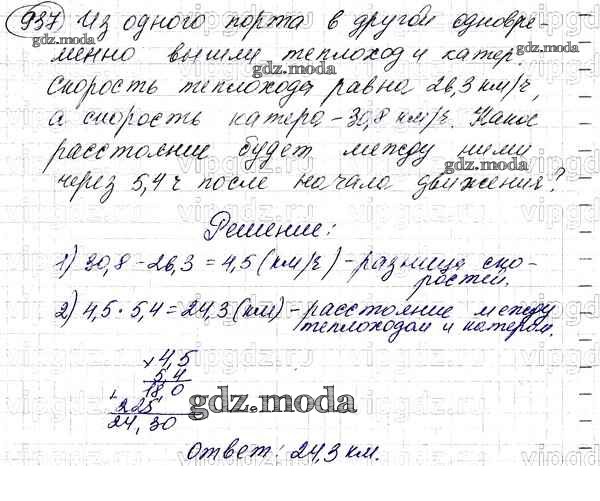 937) Из одного порта в другой одновре-
менно вышли теплоход и катер.
gdz.moda gdz.moda
Скорость теплохода равна 26,3 км/ч,
а скорость катера - 30,8 км/ч. Какое
расстояние будет между ними
gdz.moda
через 5,4 ч после начала движения?
Решение:
1) 30,8 - 26,3 = 4,5 (км/ч) - разница ско-
ростей.
2) 4,5 · 5,4 = 24,3 (км) - расстояние между
теплоходом и катером.
× 4,5
5 4
+ 18 0
gdz.moda
225
24,30
Ответ: 24,3 км.